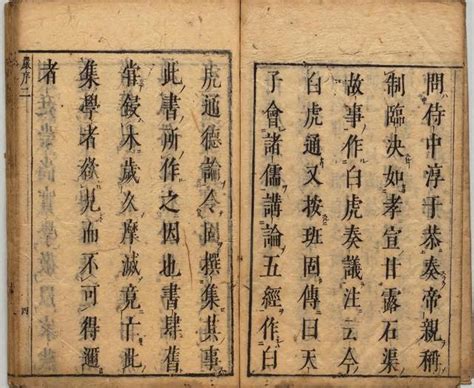 問侍中淳于恭奏帝親稱
制臨決如孝宣甘露石渠
故事作白虎奏議注云今
白虎通又按班固傳曰天
子會諸儒講論五經作白
虎通德論令固撰集其事
此書所作之因也書肆舊
嘗鋟木歲久摩滅竟亡此
集學者欲見而不可得邇
者
序二
四